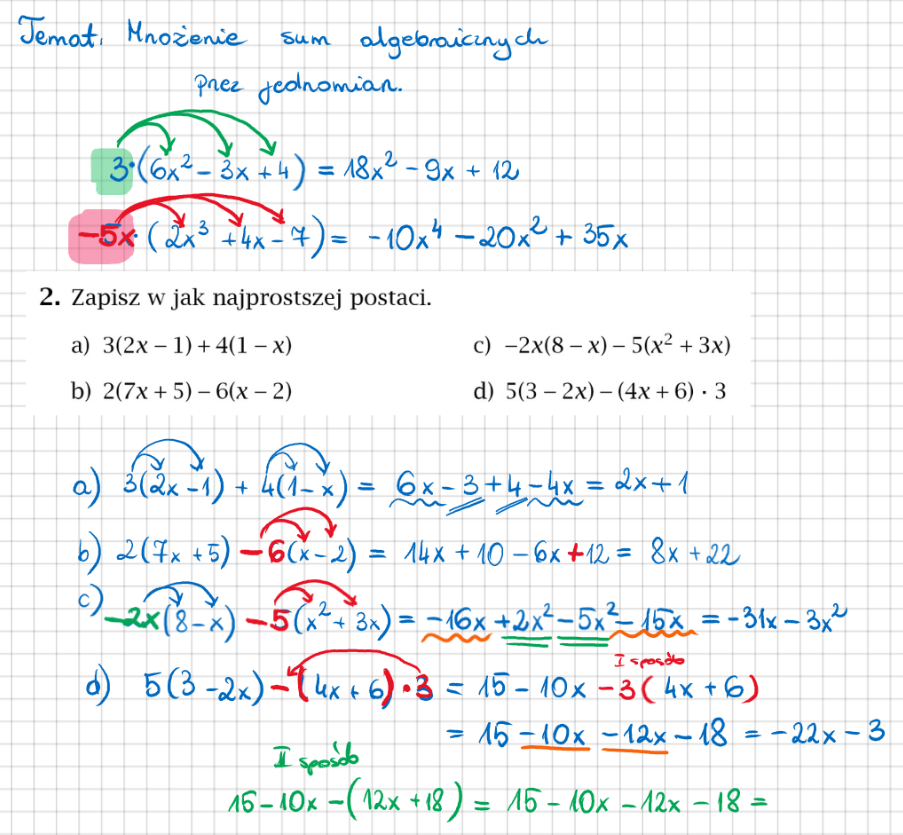 Temat. Mnożenie sum algebraicznych
przez jednomian.
3·(6x² - 3x + 4) = 18x² - 9x + 12
-5x·(2x³ + 4x - 7) = -10x⁴ - 20x² + 35x
2. Zapisz w jak najprostszej postaci.
a) 3(2x – 1) + 4(1 – x)
c) –2x(8 – x) – 5(x² + 3x)
b) 2(7x + 5) – 6(x – 2)
d) 5(3 – 2x) – (4x + 6) · 3
a) 3(2x - 1) + 4(1 - x) = 6x - 3 + 4 - 4x = 2x + 1
b) 2(7x + 5) - 6(x - 2) = 14x + 10 - 6x + 12 = 8x + 22
c) -2x(8 - x) - 5(x² + 3x) = -16x + 2x² - 5x² - 15x = -31x - 3x²
I sposób
d) 5(3 - 2x) - (4x + 6)·3 = 15 - 10x - 3(4x + 6)
= 15 - 10x - 12x - 18 = -22x - 3
I sposób
15 - 10x - (12x + 18) = 15 - 10x - 12x - 18 =